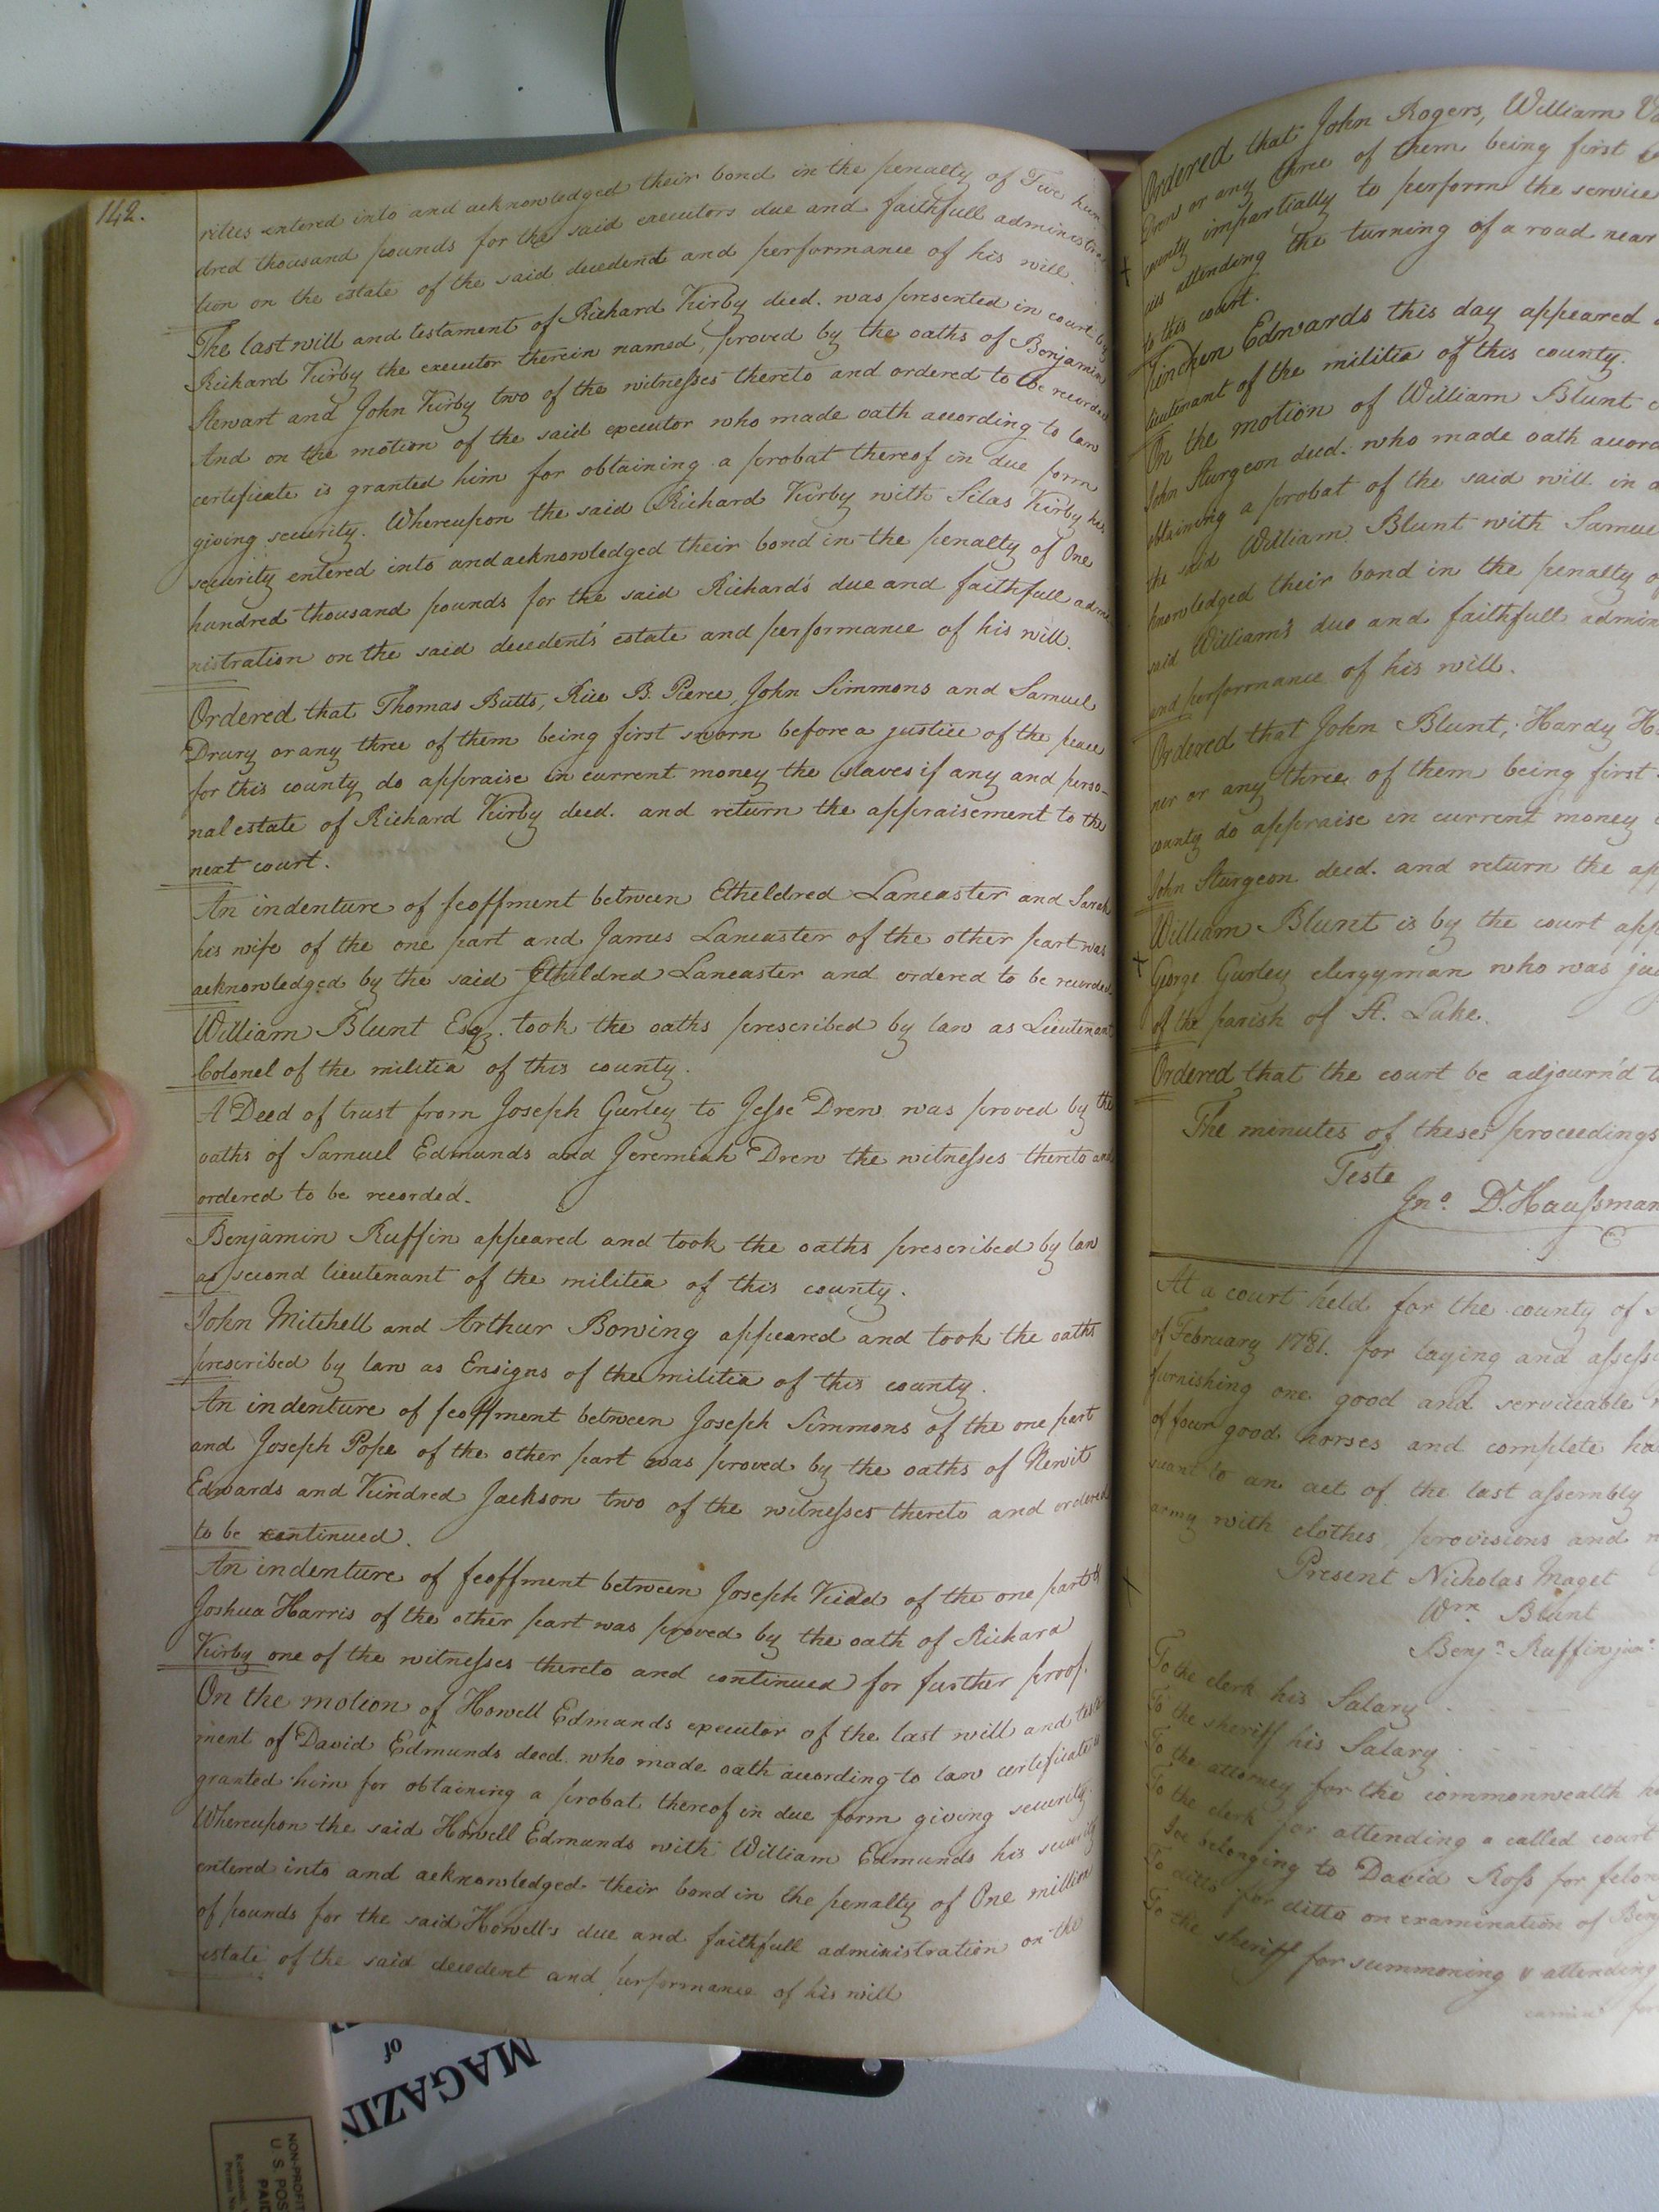 142.
rities entered into and acknowledged their bond in the penalty of Five hun
dred thousand pounds for the said executors due and faithfull administra
tion on the estate of the said decedent and performance of his will.
The last will and testament of Richard Kirby deed. was presented in court by
Richard Kirby the executor therein named, proved by the oaths of Benjamin
Stewart and John Kirby two of the witnesses thereto and ordered to be recorded
And on the motion of the said executor who made oath according to law
certificate is granted him for obtaining a probat thereof in due form
giving security. Whereupon the said Richard Kirby with Silas Kirby his
security entered into and acknowledged their bond in the penalty of One
hundred thousand pounds for the said Richard's due and faithfull admi
nistration on the said decedents' estate and performance of his will.
Ordered that Thomas Butts, Rice B. Pierce, John Simmons and Samuel
Drury or any three of them being first sworn before a justice of the peace
for this county do appraise in current money the slaves if any and perso-
nal estate of Richard Kirby deed. and return the appraisement to the
next court.
An indenture of feoffment between Etheldred Lancaster and Sarah
his wife of the one part and James Lancaster of the other part was
acknowledged by the said Etheldred Lancaster and ordered to be recorded.
William Blunt Esq. took the oaths prescribed by law as Lieutenant
Colonel of the militia of this county.
A Deed of trust from Joseph Gurley to Jesse Drew was proved by the
oaths of Samuel Edmunds and Jeremiah Drew the witnesses thereto and
ordered to be recorded.
Benjamin Ruffin appeared and took the oaths prescribed by law
as second lieutenant of the militia of this county.
John Mitchell and Arthur Bowing appeared and took the oaths
prescribed by law as Ensigns of the militia of this county.
An indenture of feoffment between Joseph Simmons of the one part
and Joseph Pope of the other part was proved by the oaths of Newit
Edwards and Kindred Jackson two of the witnesses thereto and ordered
to be continued.
An indenture of feoffment between Joseph Kidd of the one part &
Joshua Harris of the other part was proved by the oath of Richard
Kirby one of the witnesses thereto and continued for further proof.
On the motion of Howell Edmunds executor of the last will and testa
ment of David Edmunds deed. who made oath according to law certificate is
granted him for obtaining a probat thereof in due form giving security.
Whereupon the said Howell Edmunds with William Edmunds his security
entered into and acknowledged their bond in the penalty of One million
of pounds for the said Howell's due and faithfull administration on the
estate of the said decedent and performance of his will
Ordered that John Rogers, William
Drew or any three of them being first
county impartially to perform the service
attending the turning of a road near
to this court.
Kinchen Edwards this day appeared
lieutenant of the militia of this county.
On the motion of William Blunt
John Sturgeon deed. who made oath accord
obtaining a probat of the said will in
the said William Blunt with Samue
knowledged their bond in the penalty of
said William's due and faithfull admin
and performance of his will.
Ordered that John Blunt, Hardy
ner or any three of them being first
county do appraise in current money
John Sturgeon deed. and return the ap
William Blunt is by the court app
George Gurley clergyman who was
of the parish of St. Luke.
Ordered that the court be adjourn'd
The minutes of these proceedings
Teste
Jno. D. Haussman
At a court held for the county of
of February 1781. for laying and assess
furnishing one good and serviceable
of four good horses and complete ha
suant to an act of the last assembly
army with clothes, provisions and
Present Nicholas Maget
Wm. Blunt
Benjn. Ruffin junr.
To the clerk his Salary
To the sheriff his Salary
To the attorney for the commonwealth
To the clerk for attending a called court
belonging to David Ross for felon
To ditto for ditto on examination of Benj
To the sheriff for summoning & attending
MAGAZIN
of
NON-PROFIT
U. S. POS
PAID
Richmond,
Permit No.